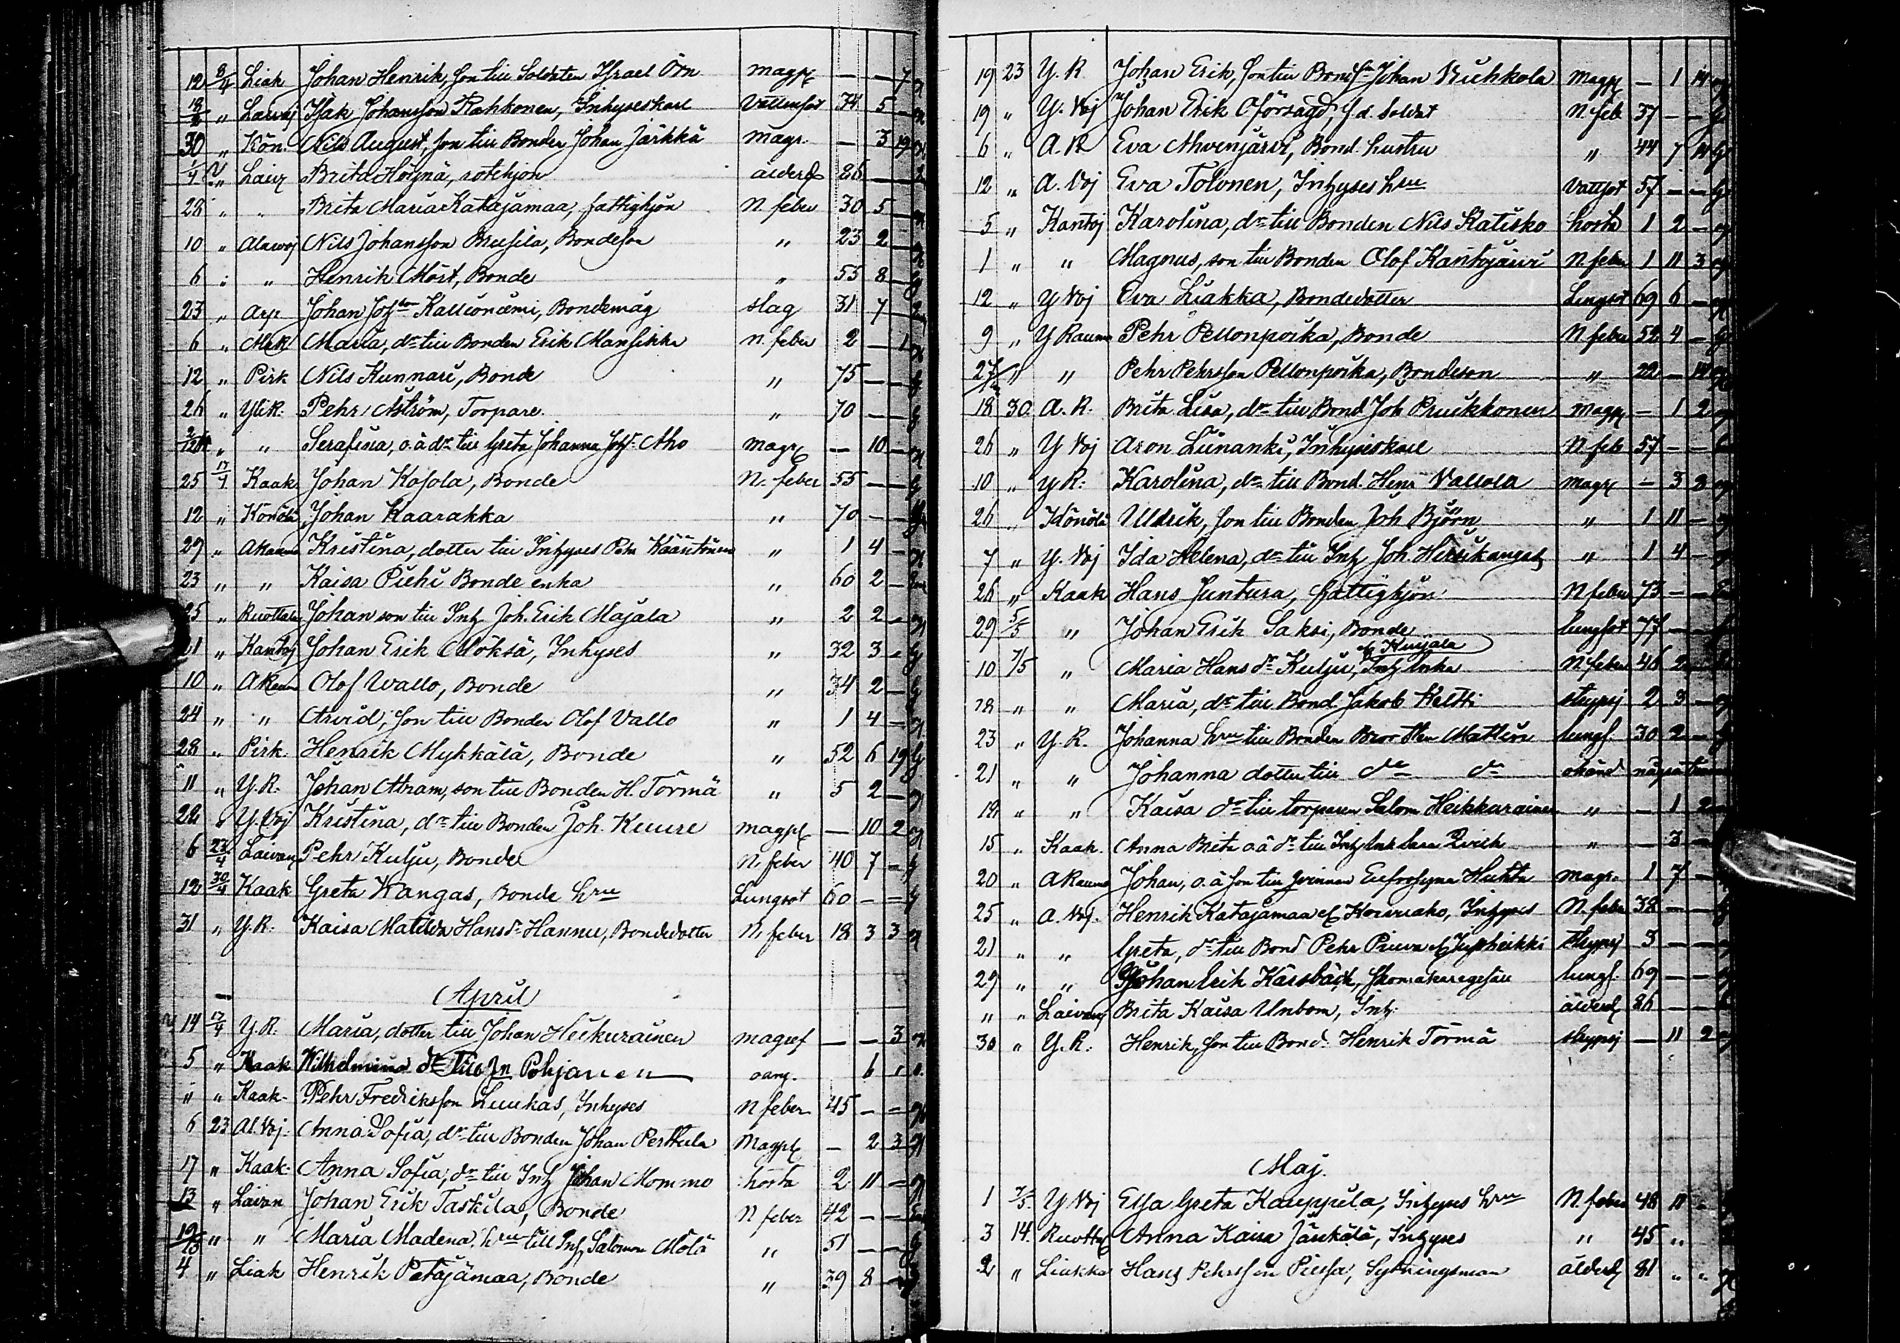 12 8/4 Liak Johan Henrik, son till Soldaten Israel Örn magpl — — 7
" Isak Johansson Rahkonen, Inhyseskarl Vattensot 74 5 —
30 " Kön. Nils August, son till Bonden Johan Jarkkä magr. — 3 19
" Laiv Brita Höynä, rotehjon ålderd 86 —
28 " " Brita Maria Katajamaa, fattighjon N feber 30 5 —
10 " Alavoj Nils Johansson Brusila, Bondeson " 23 2 —
6 " " Henrik Mört, Bonde " 55 8 —
23 " Arp Johan Kallioniemi, Bondemåg slag 31 7
6 " Maria, dr till Bonden Erik Mansikka n. feber 2 — 1
12 " Pirk Nils Kunnari, Bonde " 75 — —
26 " Yli R. Pehr Åström, Torpare " 70 — —
" " Serafina, o.ä dr till Greta Johanna Aho magr — 10 —
25 17/4 Kaak Johan Kosola, Bonde N. feber 55 — —
12 " Johan Kaarakka " 70 — —
29 " A Kristina, dotter till Inhyses Petr " 1 4 —
23 " " Kaisa Piehi Bonde enka " 60 2 —
25 " Ruottala Johan son till Inh Joh. Erik Majala " 2 2 —
21 " Johan Erik Möksä, Inhyses " 32 3 —
10 " A Raum Olof Vallo, Bonde " 34 2 —
24 " " Arvid, son till Bonden Olof Vallo " 1 4 —
28 " Pirk. Henrik Mykkälä, Bonde " 52 6 19
11 " Y. R. Johan Abram, son till Bonden H. Törmä " 5 2 —
22 " Y. Voj Kristina, dr till Bonden Joh. Kuure magpl — 10 2
6 23/4 Laivan Pehr Kulju, Bonde N. feber 40 7 —
12 30/4 Kaak Greta Kangas, Bonde hru Lungsot 60 — —
31 " Y. R. Kaisa Matilda Hansdr Hannu, Bondedotter N. feber 18 3 3
April
14 17/4 Y. R. Maria, dotter till Johan Heikurainen magref — — 3
5 " Kaak Wilhelmina dr till Pohjanen 6 1
" " Kaak. Pehr Fredriksson Luukas, Inhyses N feber 45 — —
6 23 Al. Voj. Anna Sofia, dr till Bonden Johan Perttula Magpl — 2 3
17 " Kaak. Anna Sofia, dr till Inh Johan Mommo hosta 2 11 —
13 " Laivan Johan Erik Taskila, Bonde N feber 42 — —
" " Maria Madena, hru till Inh Salomon Mölä " 51 — —
4 " Liak Henrik Patajamaa, Bonde " 39 8 —
19 23 Y. R Johan Erik, son till Bonds. Johan Ruhkola Magpl — 1 14
19 " Y. Voj Johan Erik Oförsagd, f.d. soldat N. feb 37 — —
6 " A. R Eva Ahvenjärvi, Bond. hustru " 44 7 14
12 " A. Voj Eva Tolonen, Inhyses hru Vattsot 57 — —
5 " Kantoj Karolina, dr till Bonden Nils Katisko hosta 1 2 —
1 " " Magnus, son till Bonden Olof Kantojärvi N feber 1 11 3
12 " Y Voj Eva Liakka, Bondedotter Lungsot 69 6 —
9 " Y Raumo Pehr Pellonpoika, Bonde N feber 52 4 —
" " Pehr Pehrsson Pellonpoika, Bondeson " 22 — 14
18 30 A. R. Brita Lisa, dr till Bond. Joh Pruikkonen Magpl — 1 2
26 " Y Voj Aron Liinanki, Inhyseskarl N. feb 57 — —
10 " Y R. Karolina, dr till Bond. Henr Vallola Magpl — 3 3
26 " Uldrik, son till Bonden Joh Björn " 1 11 —
7 " Y. Voj Ida Helena, dr till Inh Joh. Hirsikangas " 1 4 —
26 " Kaak Hans Juntura, fattighjon N feber 73 — —
29 5/5 " Johan Erik Saksi, Bonde lungsot 77 — —
Kuyala
10 7/5 " Maria Hansdr Kulju, Inh enka N. feber 46 2
28 " " Maria, dr till Bond Jakob Keltti strypsj 2 3 —
23 " Y. R. Johanna hru till Bonden Bror Mattlin lungs. 30 2 —
21 " " Johanna dotter till do do okänd några timmar
12 " " Kaisa dr till torparen Salom Heikkurainen " — 1 2
15 " Kaak. Anna Brita o.ä dr till Inh " — 3 —
20 " A Raumo Johan, o. ä son till qvinnan Eufrosyna Huhta magr. 1 7 —
25 " A. Voj. Henrik Katajamaa el Koivuaho, Inhyses N. feber 38 — —
21 " " Greta, dr till Bond Pehr el Juopheikki strypsj 3 — —
29 " " Johan Erik Karsbäck, skomakaregesäll lungs. 69 — —
" " Laivan Brita Kaisa Unbom, Inh. ålderd 86 — —
30 " Y. R. Henrik, son till Bond. Henrik Törmä strypsj — 11 2
Maj.
1 7/5 Y Voj Elsa Greta Kauppila, Inhyses hru N. feber 48 11 —
3 14. Ruotta Anna Kaisa Jänkälä, Inhyses " 45 "
2 " Liakka Hans Pehrsson Piessa, Sytningsman ålderd 81 " "